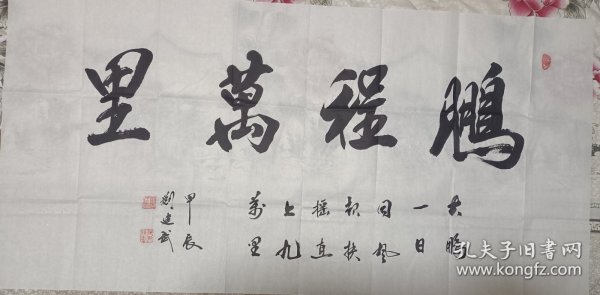 鵬程萬里
大鵬
一日
同風
起扶
搖直
上九
萬里
甲辰
劉建武
孔夫子旧书网
www.kongfz.com